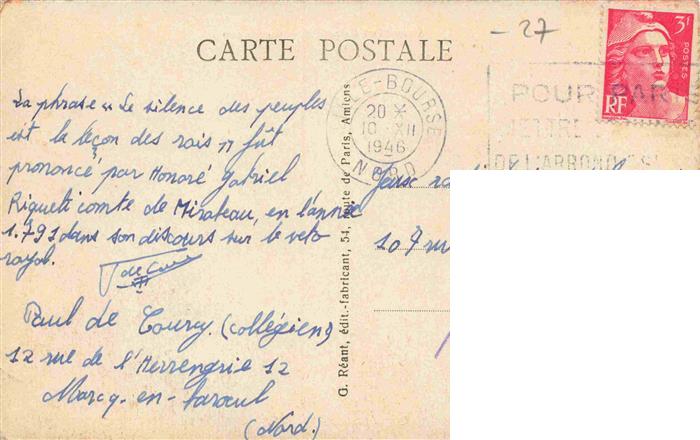 -27
CARTE POSTALE
3F
POSTES
RF
LILLE-BOURSE
20 X
10 XII
1946
NORD
POUR PAR
DE L'ARRONDISS
La phrase "Le silence des peuples
est la leçon des rois" fût
prononcé par Honoré Gabriel
Riqueti comte de Mirabeau, en l'année
1.791 dans son discours sur le veto
royal.
Paul de Courcy (collégien)
12 rue de l'Herrengrie 12
Marcq-en-Baroeul
(Nord).
G. Réant, édit.-fabricant, 54, route de Paris, Amiens
107